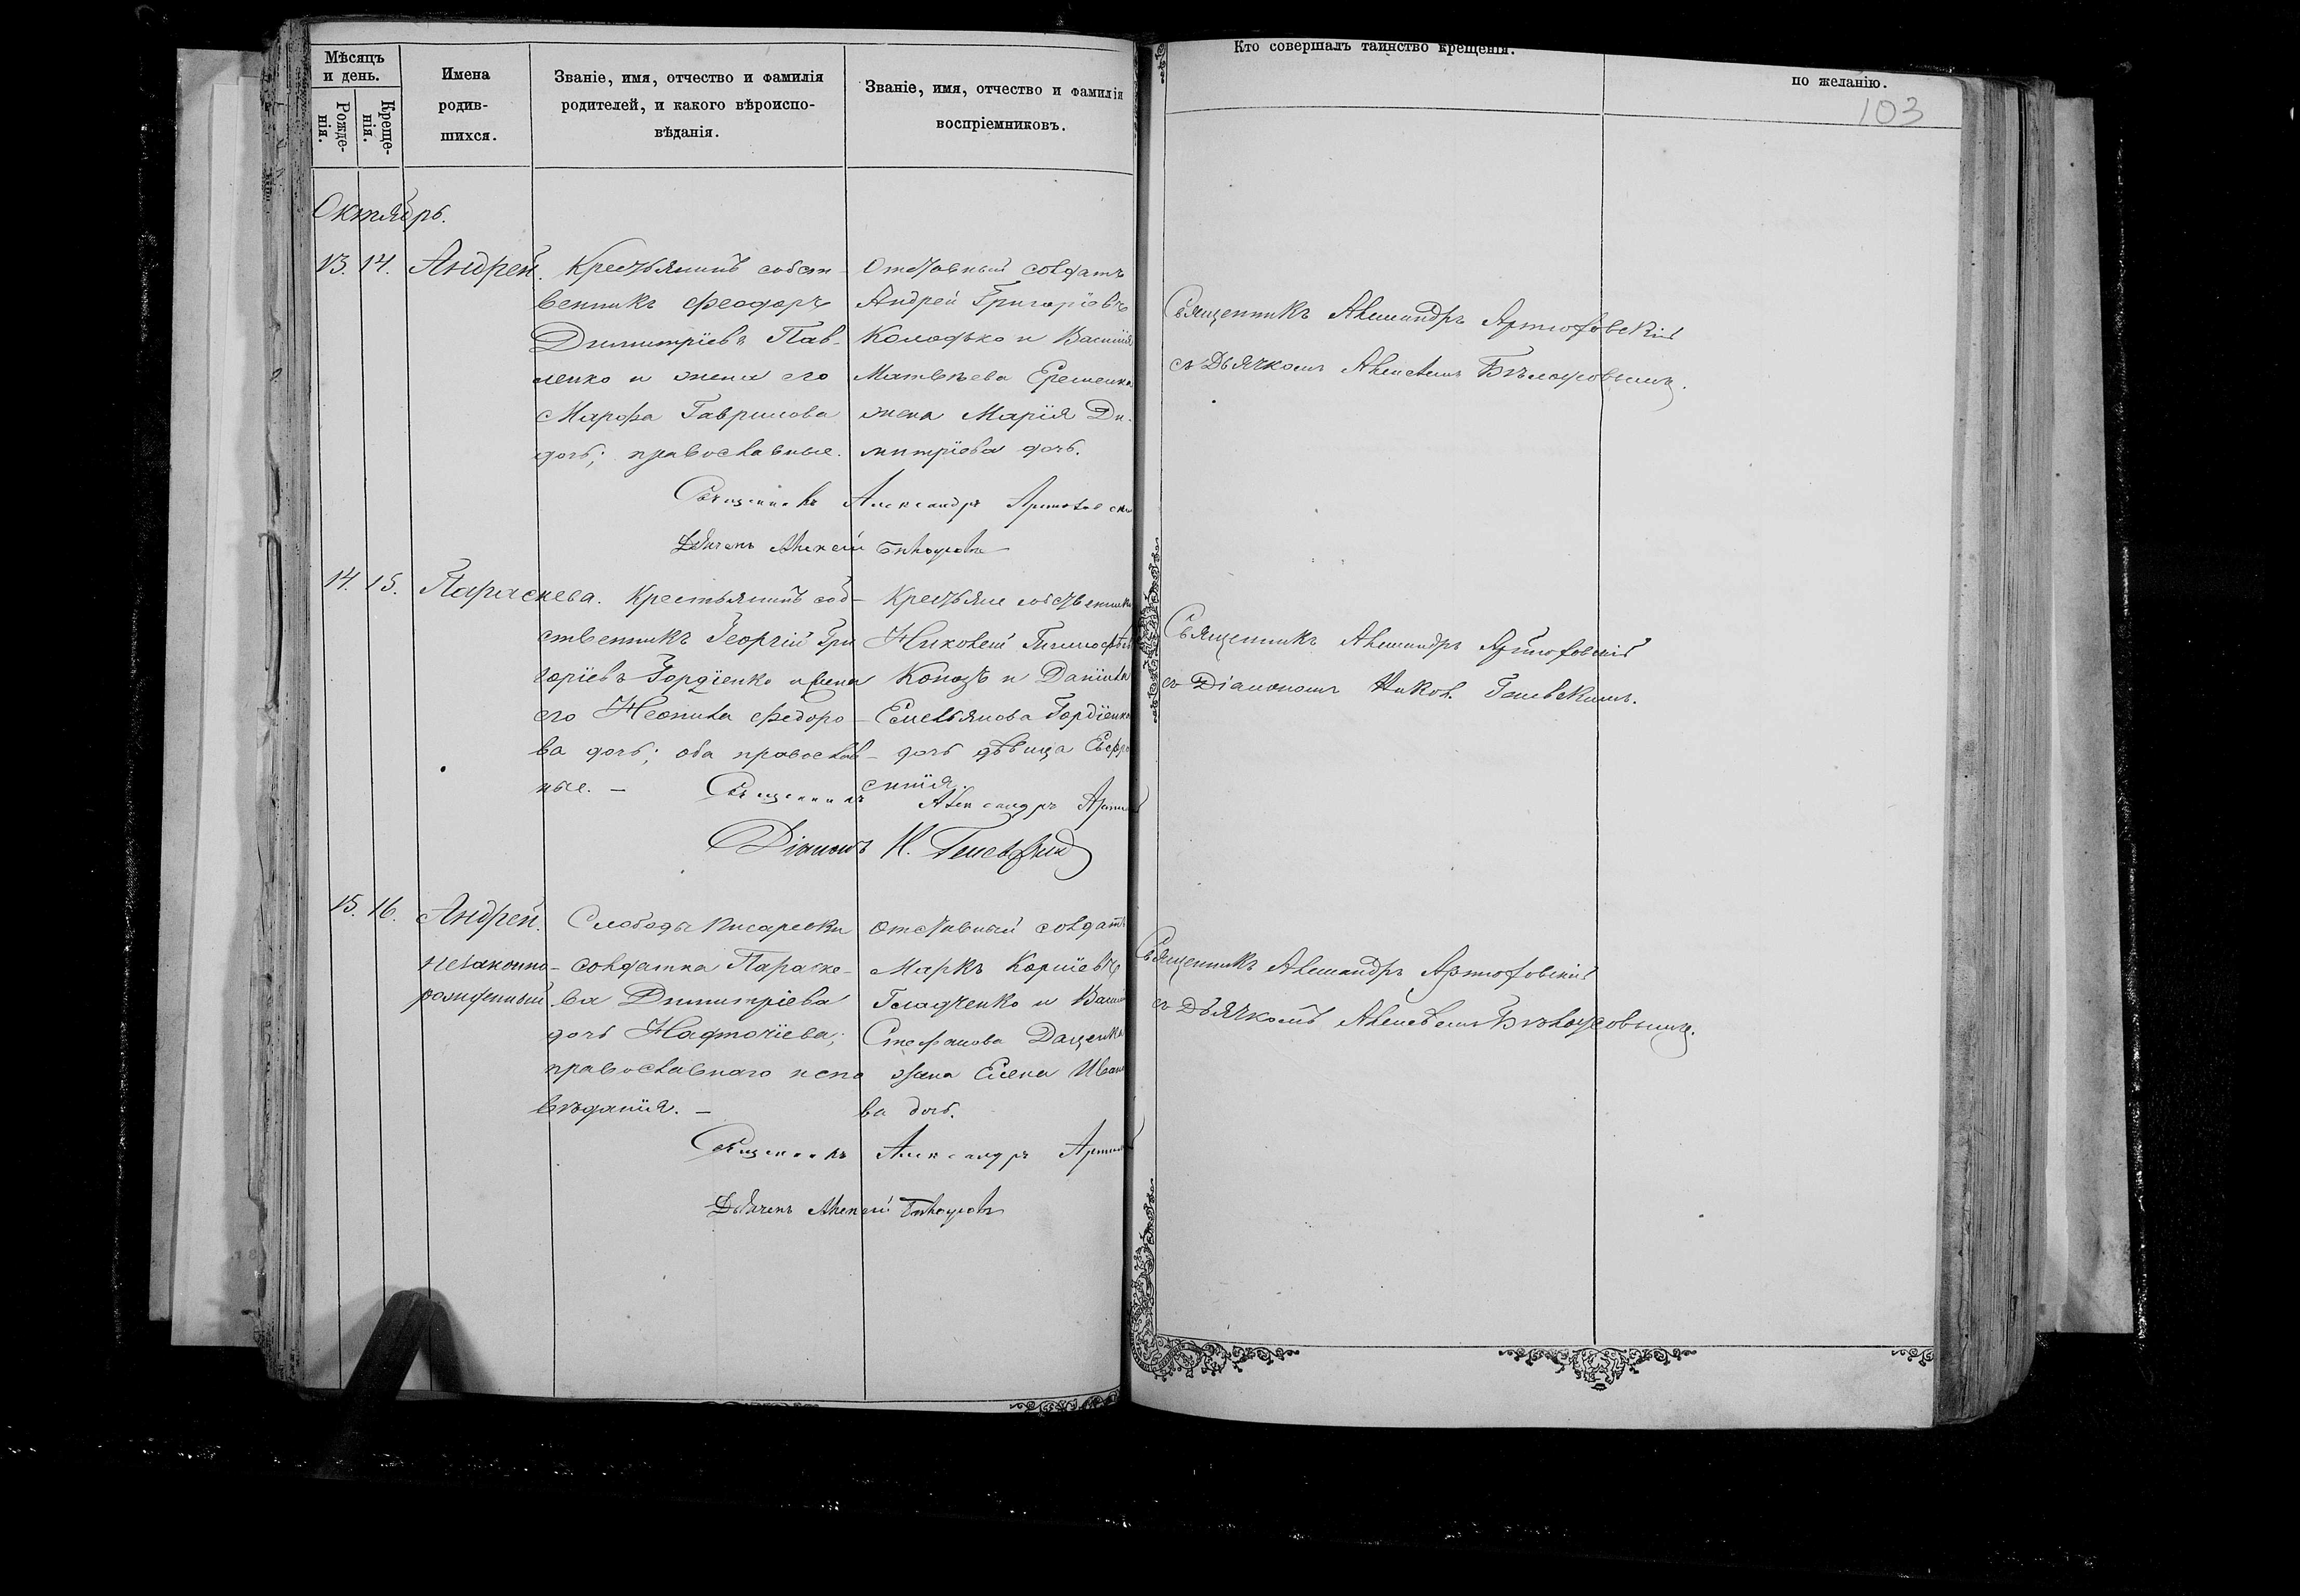 Мѣсяцъ
и день.
Рожде-
нія.
Креще-
нія.
Имена
родив-
шихся.
Званіе, имя, отчество и фамилія
родителей, и какого вѣроиспо-
вѣданія.
Званіе, имя, отчество и фамилія
воспріемниковъ.
Кто совершалъ таинство крещенія.
по желанію.
103
Октябрь.
13. 14. Андрей.
Крестьянинъ собст-
венникъ Феодоръ
Димитріевъ Пав-
ленко и жена его
Марфа Гаврилова
дочь; православные.
Отставный солдатъ
Андрей Григоріевъ
Колодько и Василія
Матвѣева Еременка
жена Марія Ди-
митріева дочь.
Священникъ Александръ
Дьячекъ Алексѣй Бѣлоусовъ
Священникъ Александръ Артюховскій
съ Дьячкомъ Алексѣемъ Бѣлоусовымъ.
14. 15. Параскева.
Крестьянинъ соб-
ственникъ Георгій Гри
горіевъ Гордіенко и жена
его Неонила Федоро-
ва дочь; оба православ-
ные. —
Крестьяне собственники
Николай
и Даніила
Емельянова Гордіенка
дочь дѣвица Евфро
синія.
Священникъ Александръ
Діаконъ Н.
Священникъ Александръ Артюховскій
съ Діакономъ Никол.
15. 16. Андрей.
незаконно-
рожденный
Слободы Писаревки
солдатка Параске-
ва Димитріева
дочь
православнаго испо
вѣданія. —
Отставный солдатъ
Маркъ Корніевъ
Гладченко и Василія
Стефанова Даценка
жена Елена Ивано
ва дочь.
Священникъ Александръ
Дьячекъ Алексѣй Бѣлоусовъ
Священникъ Александръ Артюховскій
съ Дьячкомъ Алексѣемъ Бѣлоусовымъ.